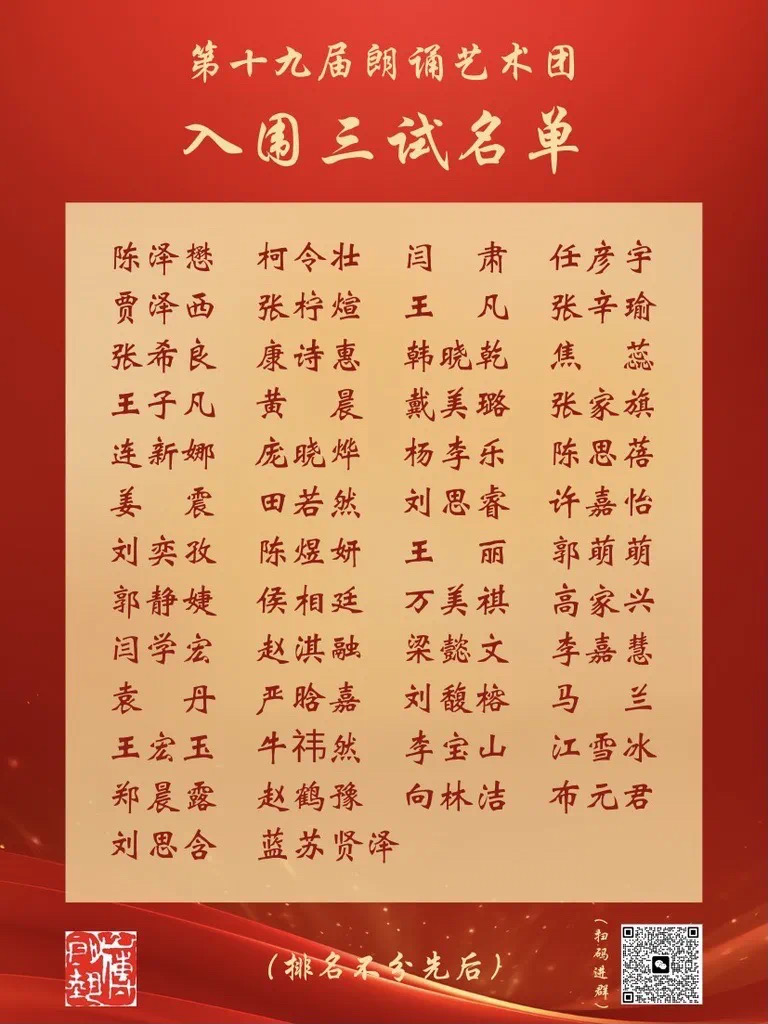 第十九届朗诵艺术团
入围三试名单
陈泽懋 柯令壮 闫肃 任彦宇
贾泽西 张柠煊 王凡 张辛瑜
张希良 康诗惠 韩晓乾 焦蕊
王子凡 黄晨 戴美璐 张家旗
连新娜 庞晓烨 杨李乐 陈思蓓
姜震 田若然 刘思睿 许嘉怡
刘奕孜 陈煜妍 王丽 郭萌萌
郭静婕 侯相廷 万美祺 高家兴
闫学宏 赵淇融 梁懿文 李嘉慧
袁丹 严晗嘉 刘馥榕 马兰
王宏玉 牛祎然 李宝山 江雪冰
郑晨露 赵鹤豫 向林洁 布元君
刘思含 蓝苏贤泽
(排名不分先后)
(扫码进群)